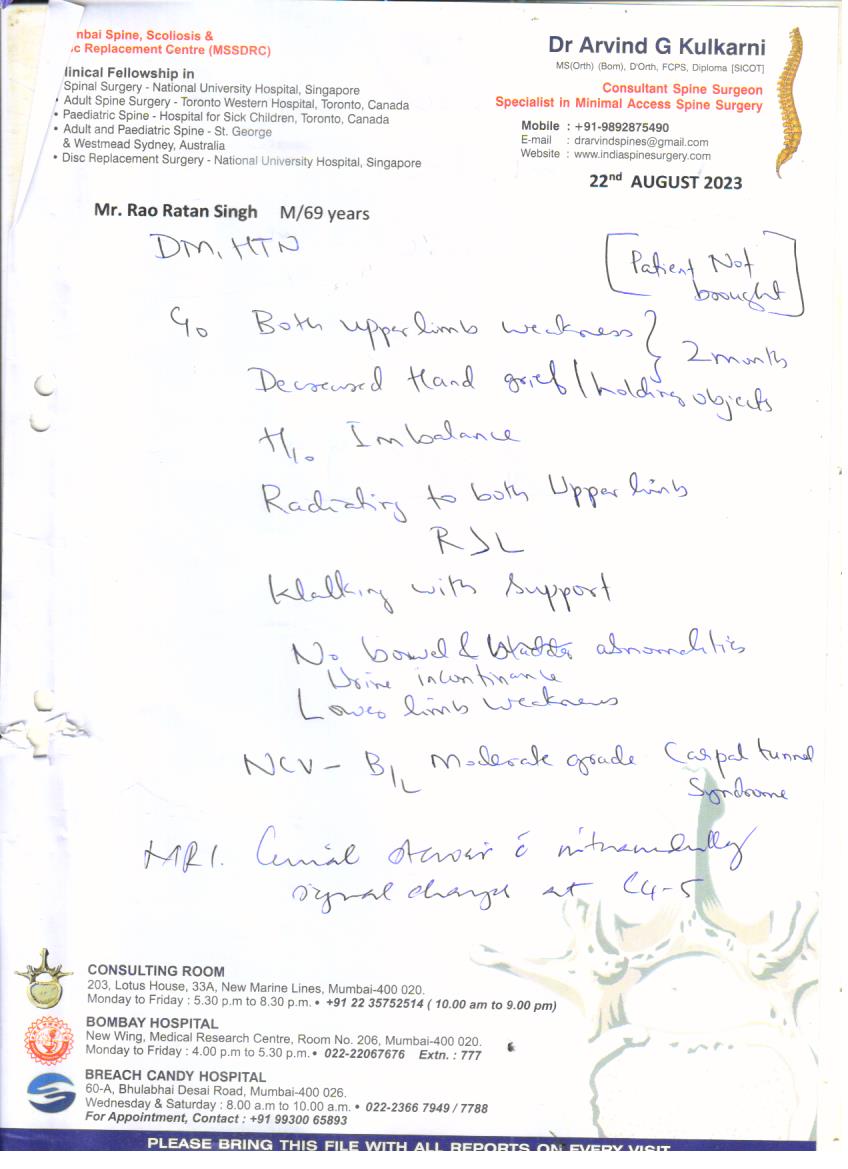 nbai Spine, Scoliosis &
c Replacement Centre (MSSDRC)
linical Fellowship in
Spinal Surgery - National University Hospital, Singapore
• Adult Spine Surgery - Toronto Western Hospital, Toronto, Canada
• Paediatric Spine - Hospital for Sick Children, Toronto, Canada
• Adult and Paediatric Spine - St. George
& Westmead Sydney, Australia
• Disc Replacement Surgery - National University Hospital, Singapore
Dr Arvind G Kulkarni
MS(Orth) (Bom), D'Orth, FCPS, Diploma [SICOT]
Consultant Spine Surgeon
Specialist in Minimal Access Spine Surgery
Mobile : +91-9892875490
E-mail : drarvindspines@gmail.com
Website : www.indiaspinesurgery.com
22nd AUGUST 2023
Mr. Rao Ratan Singh M/69 years
DM, HTN
[Patient Not
brought]
C/o Both upper limb weakness } 2 month
Decreased Hand grief / holding objects
H/o Imbalance
Radiating to both Upper limb
R>L
Walking with support
No bowel & bladder abnormalities
Urine incontinance
Lower limb weakness
NCV - B/L Moderate grade Carpal tunnel
Syndrome
MRI. c
signal changes at C4-5
CONSULTING ROOM
203, Lotus House, 33A, New Marine Lines, Mumbai-400 020.
Monday to Friday : 5.30 p.m to 8.30 p.m. • +91 22 35752514 ( 10.00 am to 9.00 pm)
BOMBAY HOSPITAL
New Wing, Medical Research Centre, Room No. 206, Mumbai-400 020.
Monday to Friday : 4.00 p.m to 5.30 p.m. • 022-22067676 Extn. : 777
BREACH CANDY HOSPITAL
60-A, Bhulabhai Desai Road, Mumbai-400 026.
Wednesday & Saturday : 8.00 a.m to 10.00 a.m. • 022-2366 7949 / 7788
For Appointment, Contact : +91 99300 65893
PLEASE BRING THIS FILE WITH ALL REPORTS ON EVERY VISIT